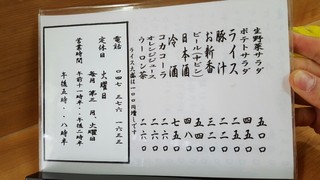 生野菜サラダ 五〇〇
ポテトサラダ
ライス
豚汁
お新香
ビール(中ビン)
日本酒
冷酒 七五〇
コカコーラ 二六〇
オレンジジュース 二六〇
ウーロン茶 二六〇
ライス大盛は一〇〇円増しです
電話 〇四七 三七六 一六三三
定休日 火曜日
毎月 第三 月、火曜日
営業時間 午前十一時半…午後二時半
午後五時…八時半